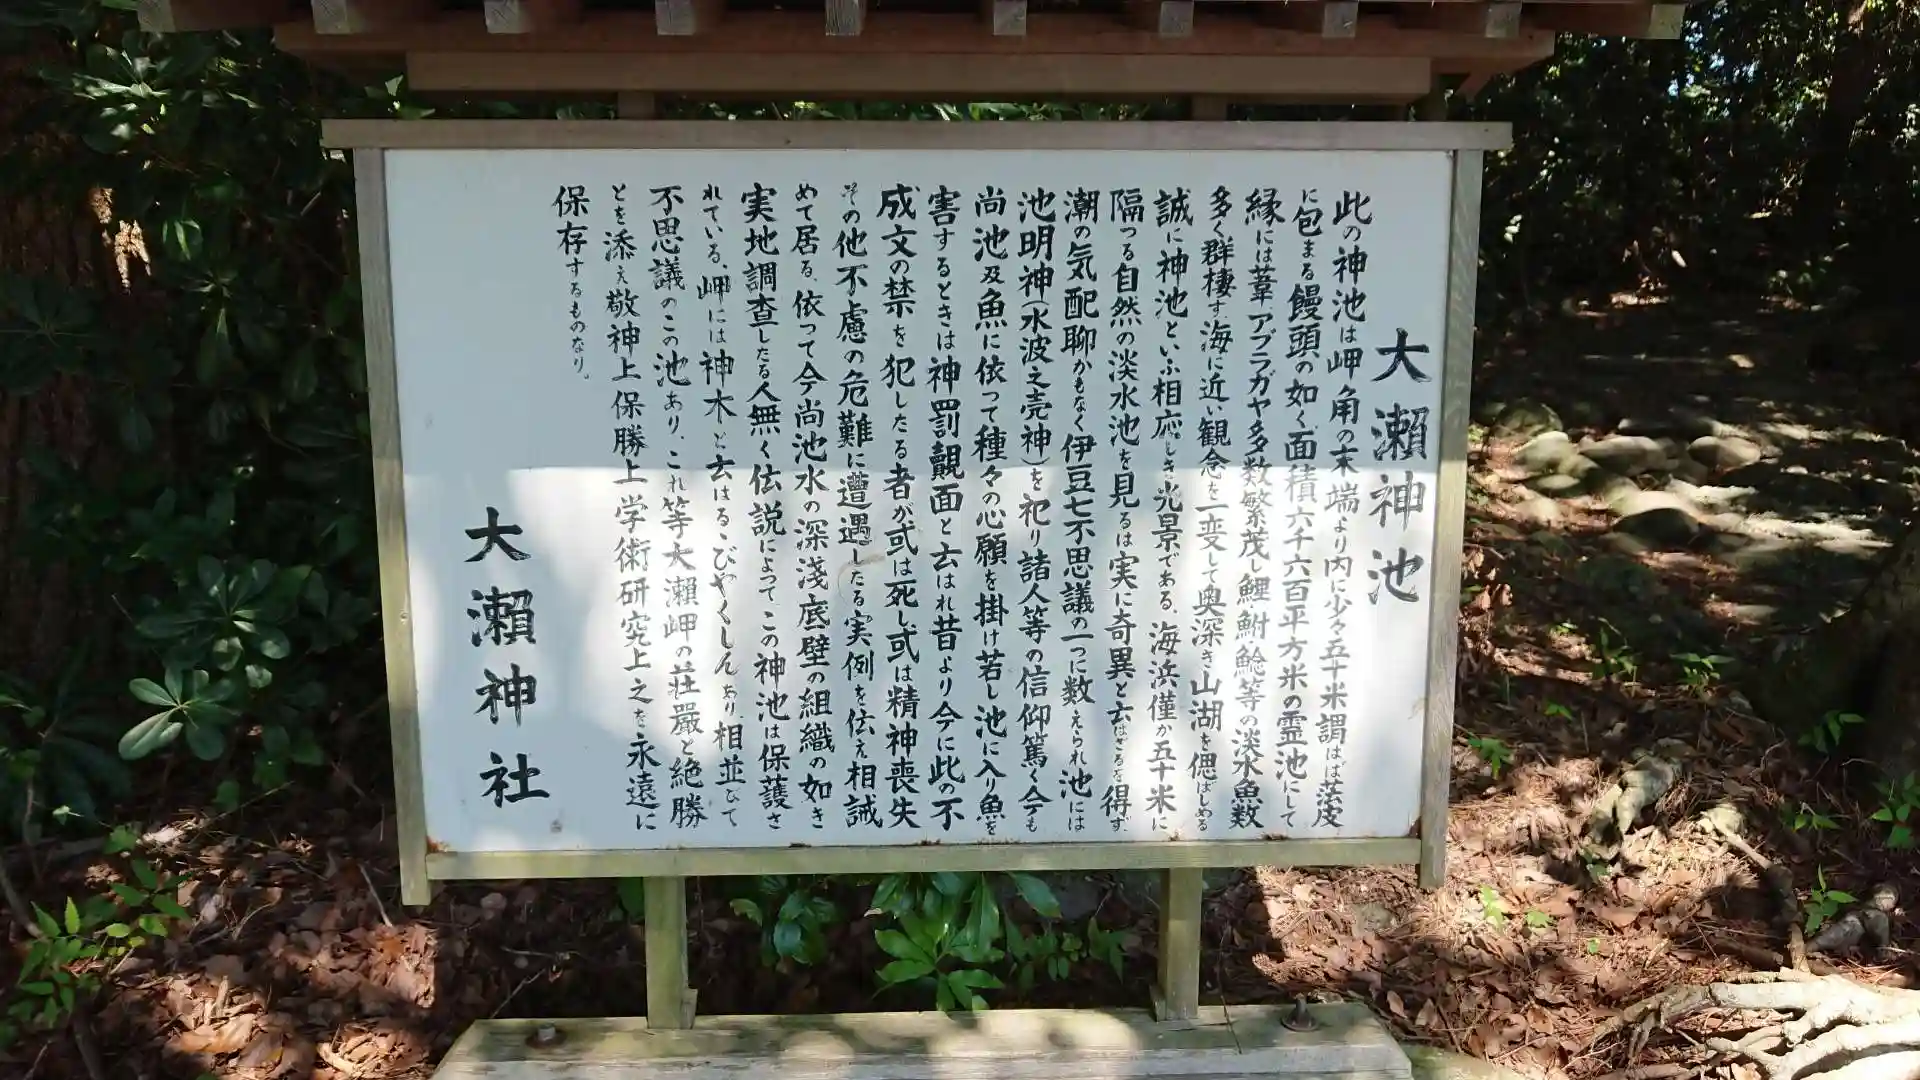 大瀬神池
此の神池は岬角の末端より内に少々五十米謂はば茎皮
に包まる饅頭の如く面積六千六百平方米の霊池にして
縁には葦アブラガヤ多数繁茂し鯉鮒鯰等の淡水魚数
多く群棲す、海に近い観念を一変して奥深き山湖を偲ばしめる
誠に神池といふ相応しき光景である、海浜僅か五十米に
隔つる自然の淡水池を見るは実に奇異と云はざるを得ず、
潮の気配聊かもなく伊豆七不思議の一つに数えられ池には
池明神(水波之売神)を祀り諸人等の信仰篤く今も
尚池及魚に依って種々の心願を掛け若し池に入り魚を
害するときは神罰覿面と云はれ昔より今に此の不
成文の禁を犯したる者が或は死し、或は精神喪失
その他不慮の危難に遭遇したる実例を伝え相誡
めて居る、依つて今尚池水の深浅底壁の組織の如き
実地調査したる人無く伝説によって、この神池は保護さ
れている、岬には神木と云はるゝびやくしんあり、相並びて
不思議のこの池あり、これ等大瀬岬の荘厳と絶勝
とを添え敬神上保勝上学術研究上之を永遠に
保存するものなり。
大瀬神社